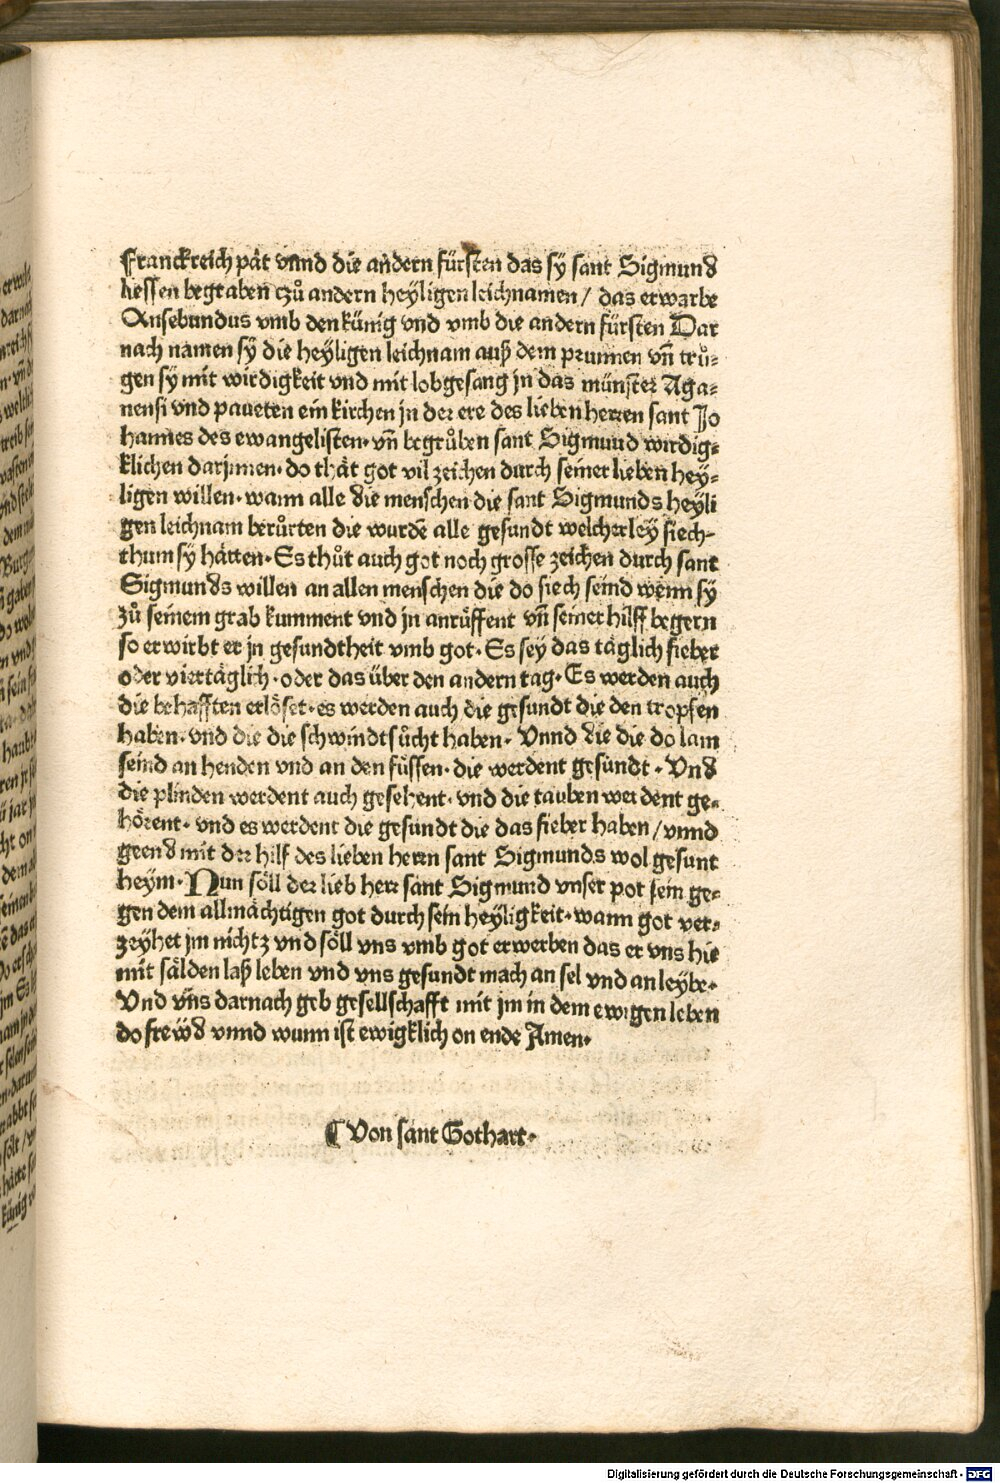 Franckreich pät vnnd die andern fürsten das sÿ sant Sigmund
liessen begraben zů andern heÿligen leichnamen / das erwarbe
Ansebundus vmb den künig vnd vmb die andern fürsten Dar
nach namen sÿ die heÿligen leichnam auß dem prunnen vn̄ trů⸗
gen sÿ mit wirdigkeit vnd mit lobgesang jn das münster Aga⸗
nensi vnd paueten ein kirchen jn der ere des lieben herren sant Jo
hannes des ewangelisten· vn̄ begrůben sant Sigmund wirdig⸗
klichen darjnnen· do thät got vil zeichen durch seiner lieben hey⸗
ligen willen· wann alle die menschen die sant Sigmunds heyli
gen leichnam berůrten die wurdē alle gesundt welcherley siech⸗
thum sÿ hätten· Es thůt auch got noch grosse zeichen durch sant
Sigmunds willen an allen menschen die do siech seind wenn sÿ
zů seinem grab kumment vnd jn anrüffent vn̄ seiner hilff begern
so erwirbt er jn gesundtheit vmb got· Es sey das täglich fieber
oder viertäglich· oder das über den andern tag· Es werden auch
die behafften erlöset· es werden auch die gesundt die den tropfen
haben· vnd die die schwindtsücht haben· Vnnd die die do lam
seind an henden vnd an den füssen· die werdent gesundt· Vnd
die plinden werdent auch gesehent· vnd die tauben werdent ge⸗
hörent· vnd es werdent die gesundt die das fieber haben / vnnd
geend mit der hilf des lieben herrn sant Sigmunds wol gesunt
heym· Nun söll der lieb herr sant Sigmund vnser pot sein ge⸗
gen dem allmächtigen got durch sein heyligkeit· wann got ver⸗
zeyhet jm nichtz vnd söll vns vmb got erwerben das er vns hie
mit sälden laß leben vnd vns gesundt mach an sel vnd an leybe·
Vnd vns darnach geb gesellschafft mit jm in dem ewigen leben
do frewd vnnd wunn ist ewigklich on ende Amen·
¶ Von sant Gothart·
Digitalisierung gefördert durch die Deutsche Forschungsgemeinschaft - DFG